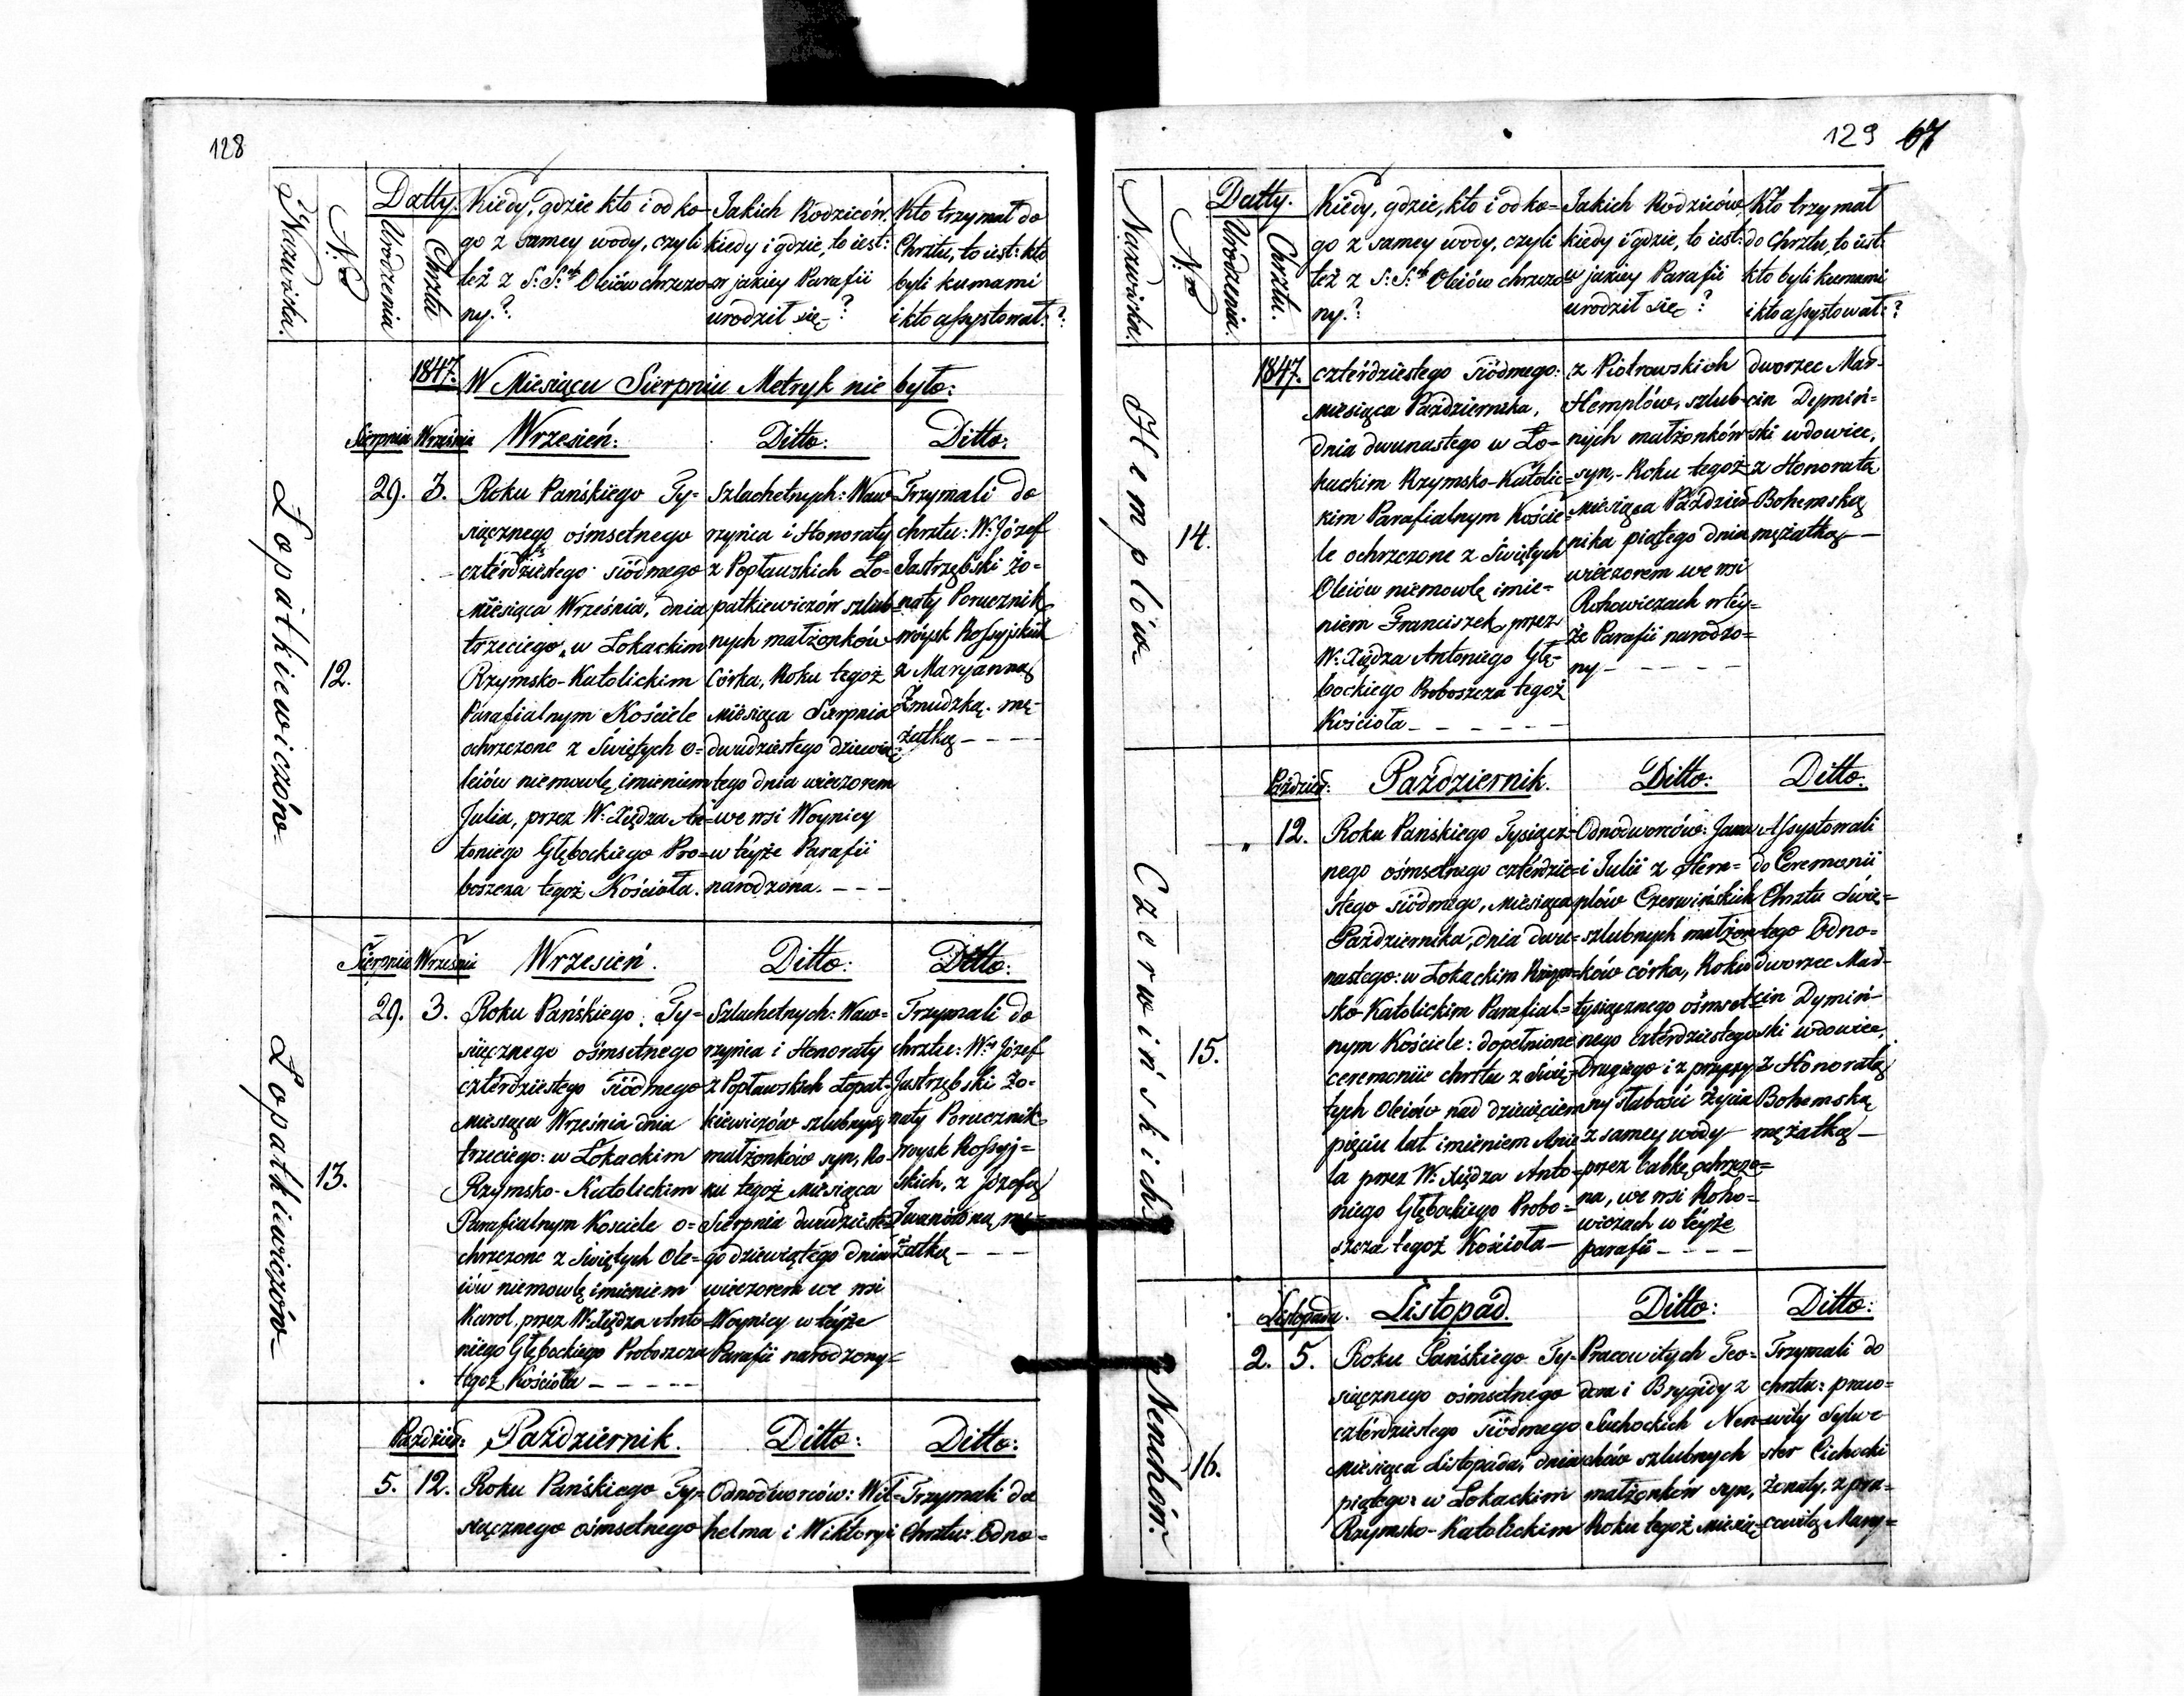 128
Nazwiska.
N:ro
Datty.
Urodzenia
Chrztu
Kiedy, gdzie kto i od ko-
go z samey wody, czyli
też z S: S:ch Oleiów chrzczo-
ny.?
Jakich Rodziców.
kiedy i gdzie, to iest:
w jakiey Parafii
urodził się?
Kto trzymał do
Chrztu, to iest: kto
byli kumami
i kto assystował:?
1847.
W Miesiącu Sierpniu Metryk nie było:
Sierpnia
Września
Wrzesień:
Ditto:
Ditto:
Łopatkiewiczów
12.
29.
3.
Roku Pańskiego Ty=
siącznego ośmsetnego
czterdziestego siódmego
Miesiąca Września, dnia
trzeciego, w Łokackim
Rzymsko-Katolickim
Parafialnym Kościele
ochrzczone z Świętych O=
leiów niemowlę, imieniem
Julia, przez W: Xiędza An=
toniego Głębockiego Pro=
boszcza tegoż Kościoła.
Szlachetnych: Waw
rzyńca i Honoraty
z Popławskich Ło-
patkiewiczów szlub=
nych małżonków
Córka, Roku tegoż
Miesiąca Sierpnia
dwudziestego dziewią=
tego dnia wieczorem
we wsi Woynicy
w téyże Parafii
narodzona. - - -
Trzymali do
chrztu: W: Józef
Jastrzębski żo-
naty Porucznik
wóysk Rossyjskich
z Maryanną
Żmudzką. mę-
żatką - - - -
Sierpnia
Września
Wrzesień.
Ditto:
Ditto:
Łopatkiewiczów
13.
29.
3.
Roku Pańskiego: Ty=
siącznego ośmsetnego
czterdziestego siódmego
Miesiąca Września dnia
trzeciego: w Łokackim
Rzymsko-Katolickim
Parafialnym Kościele o=
chrzczone z Świętych Ole=
iów niemowlę imieniem
Karol, przez W: Xiędza Anto
niego Głębockiego Proboszcza
tegoż Kościoła - - - - -
Szlachetnych: Waw=
rzyńca i Honoraty
z Popławskich Łopat=
kiewiczów szlubnych
małżonków syn, Ro=
ku tegoż Miesiąca
Sierpnia dwudzieste=
go dziewiątego dnia
wieczorem we wsi
Woynicy w téyże
Parafii narodzony=
Trzymali do
chrztu: W: Józef
Jastrzębski żo-
naty Porucznik
woysk Rossyj=
skich, z Józefą
Iwanówną mę=
żatką - - - -
Paździer:
Październik.
Ditto:
Ditto:
5.
12.
Roku Pańskiego Ty=
siącznego ośmsetnego
Odnodworców: Wil=
helma i Wiktoryi
Trzymali do
Chrztu: Odno=
129
67
Nazwiska.
N:ro
Datty.
Urodzenia.
Chrztu.
Kiedy, gdzie, kto i od ko=
go z samey wody, czyli
też z S: S:ch Oleiów chrzczo=
ny.?
Jakich Rodziców,
kiedy i gdzie, to iest:
w jakiey Parafii
urodził się?
Kto trzymał
do Chrztu, to iest:
kto byli kumami
i kto assystował:?
1847.
Hemplów
14.
czterdziestego siódmego:
Miesiąca Października,
dnia dwunastego w Ło-
kackim Rzymsko-Katolic=
kim Parafialnym Koście=
le ochrzczone z Świętych
Oleiów niemowlę imie=
niem Franciszek, przez
W: Xiędza Antoniego Głę-
bockiego Proboszcza tegoż
Kościoła - - - - - -
z Piotrowskich
Hemplów, szlub-
nych małżonków
syn, - Roku tegoż
Miesiąca Paździer=
nika piątego dnia
wieczorem we wsi
Rohowiczach w téy=
że Parafii narodzo=
ny - - - - - -
dworzec Mar-
cin Dymiń=
ski wdowiec,
z Honoratą
Bohemską
mężatką - -
Paździer:
Październik.
Ditto:
Ditto.
Czerwińskich
15.
"
12.
Roku Pańskiego Tysiącz=
nego ośmsetnego czterdzie=
stego siódmego, Miesiąca
Października, dnia dwu=
nastego: w Łokackim Rzym=
sko-Katolickim Parafial=
nym Kościele: dopełnione
ceremonie chrztu z Świę=
tych Oleiów nad dziecięciem
pięciu lat imieniem Anie
la przez W: Xiędza Anto=
niego Głębockiego Probo=
szcza tegoż Kościoła -
Odnodworców: Jana
i Julii z Hem=
plów Czerwińskich
szlubnych małżon=
ków córka, Roku
tysiącznego ośmset=
nego czterdziestego
Drugiego i z przyczy
ny słabości życia
z samey wody
przez babkę ochrzczo=
na, we wsi Roho=
wiczach w téyże
parafii - - - -
Assystowali
do Ceremonii
Chrztu Świę=
tego Odno=
dworzec Mar-
cin Dymiń-
ski wdowiec,
z Honoratą
Bohemską
mężatką -
Listopada.
Listopad.
Ditto:
Ditto:
Nenchów.
16.
2.
5.
Roku Pańskiego Ty-
siącznego ośmsetnego
czterdziestego siódmego
Miesiąca Listopada, dnia
piątego: w Łokackim
Rzymsko-Katolickim
Pracowitych Teo=
dora i Brygidy z
Suchockich Nen=
chów szlubnych
małżonków syn,
Roku tegoż Miesią=
Trzymali do
chrztu: praco=
wity Sylwe
ster Cichocki
żonaty, z pra=
cowitą Mary=